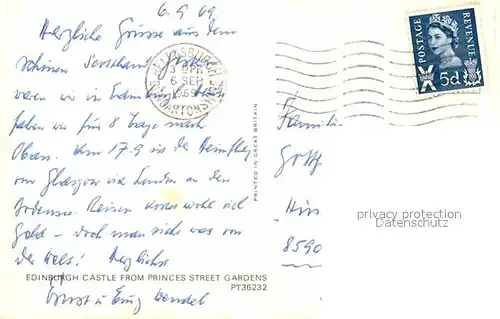 6.9.69
Herzliche Grüsse aus dem
schönen Schottland. Gestern
waren wir in Edinburgh, nun
fahren wir für 8 Tage nach
Oban. Am 17.9 ist der Heimflug
von Glasgow via London an den
Bodensee. Reisen kostet wohl viel
Geld – doch man sieht was von
der Welt! Herzlichst
EDINBURGH CASTLE FROM PRINCES STREET GARDENS
PT36232
Ernst u.
PRINTED IN GREAT BRITAIN
3 30PM
6 SEP
1969
POSTAGE
REVENUE
5d
Famili
Gott
8590
privacy protection
Datenschutz